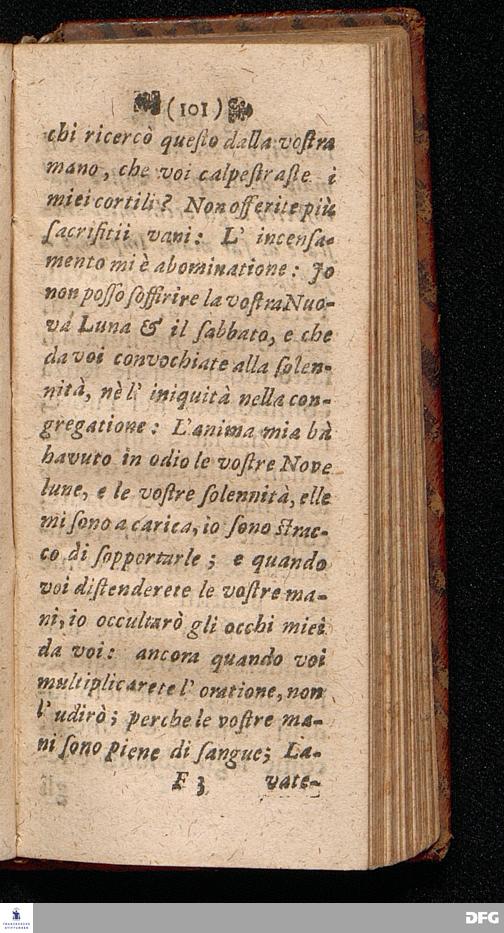 (101)
chi ricercò queſto dalla voſtra
mano, che voi calpeſtraſte i
miei cortili? Non offerite più
ſacrifitii vani: L' incenſa-
mento mi è abominatione: Jo
non poſſo ſoffirire la voſtra Nuo-
va Luna & il ſabbato, e che
da voi convochiate alla ſolen-
nità, nè l' iniquità nella con-
gregatione: L'anima mia hà
havuto in odio le voſtre Nove
lune, e le voſtre ſolennità, elle
mi ſono a carica, io ſono ſtrac-
co di ſopportarle; e quando
voi diſtenderete le voſtre ma-
ni, io occultarò gli occhi miei
da voi: ancora quando voi
multiplicarete l' oratione, non
l' udirò; perche le voſtre ma-
ni ſono piene di ſangue; La-
F 3 vate-
FRANCKESCHE
STIFTUNGEN
DFG